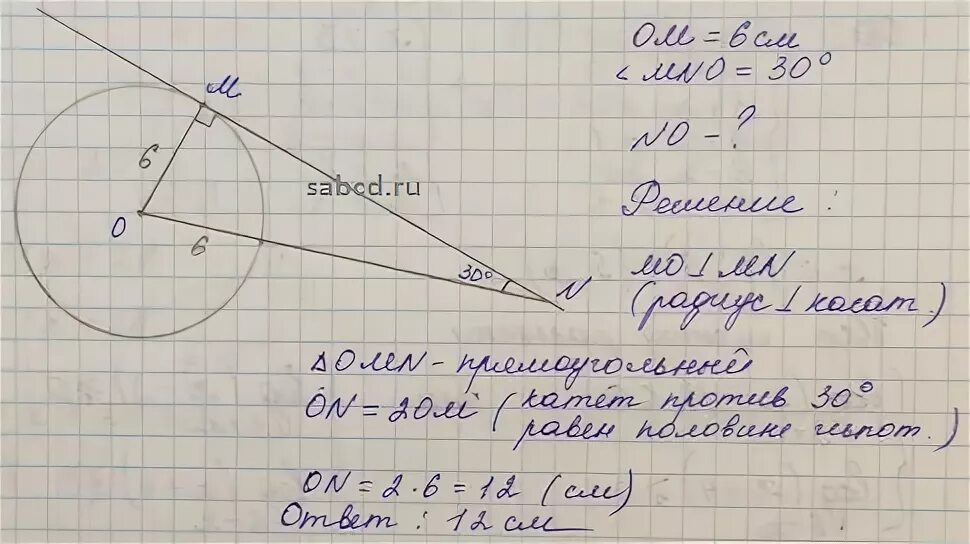 M
6
O
6
30°
N
sabcd.ru
OM = 6 см
< MNO = 30°
NO - ?
Решение :
MO ⊥ MN
(радиус ⊥ касат.)
△OMN - прямоугольный
ON = 2OM (катет против 30°
равен половине гипот.)
ON = 2·6 = 12 (см)
Ответ : 12 см